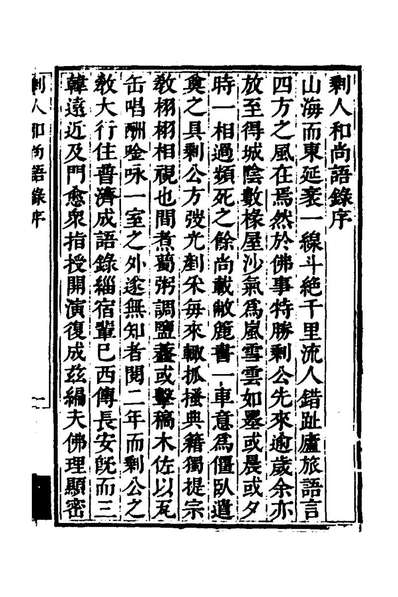 剩人和尚語錄序
山海而東延袤一線斗絶千里流人錯趾廬旅語言
四方之風在焉然於佛事特勝剩公先來逾歲余亦
放至得城陰數椽屋沙氣為嵐雪雲如墨或晨或夕
時一相過頻死之餘尚載敝簏書一車意為偃臥遣
奠之具剩公方發光剷采每來輒抓搔典籍獨提宗
敎栩栩相視也間煮葛粥調鹽虀或擊稿木佐以瓦
缶唱酬唫咏一室之外遂無知者閱二年而剩公之
敎大行住普濟成語錄緇宿輩巳西傳長安旣而三
韓遠近及門愈衆指授開演復成玆編夫佛理顯密
剩人和尚語錄序
一